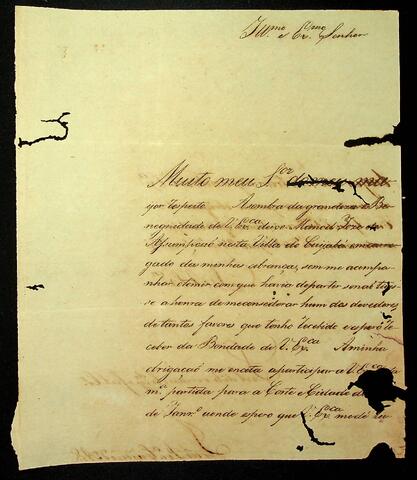 Illmo e Exmo Senhor
Muito meu Sor do meu ma
jor respeito Asombra da grandeza e Be
negnidade de V. Exca deixo Manoel Joze de
Assumpsaõ nesta Villa do Cuijabá encarre
gado das minhas cobranças, sem me acompa
nhar o temor com que havia de partir se naõ tives
se a honra de me considerar hum dos devedores
de tantos favores que tenho recebido e espero re
ceber da Bondade de V. Exca Aminha
obrigacaõ me enceta a participar a V. Exca
ma partida para a Corte e Cidade do
de Janro aonde espero que V. Exca me dê